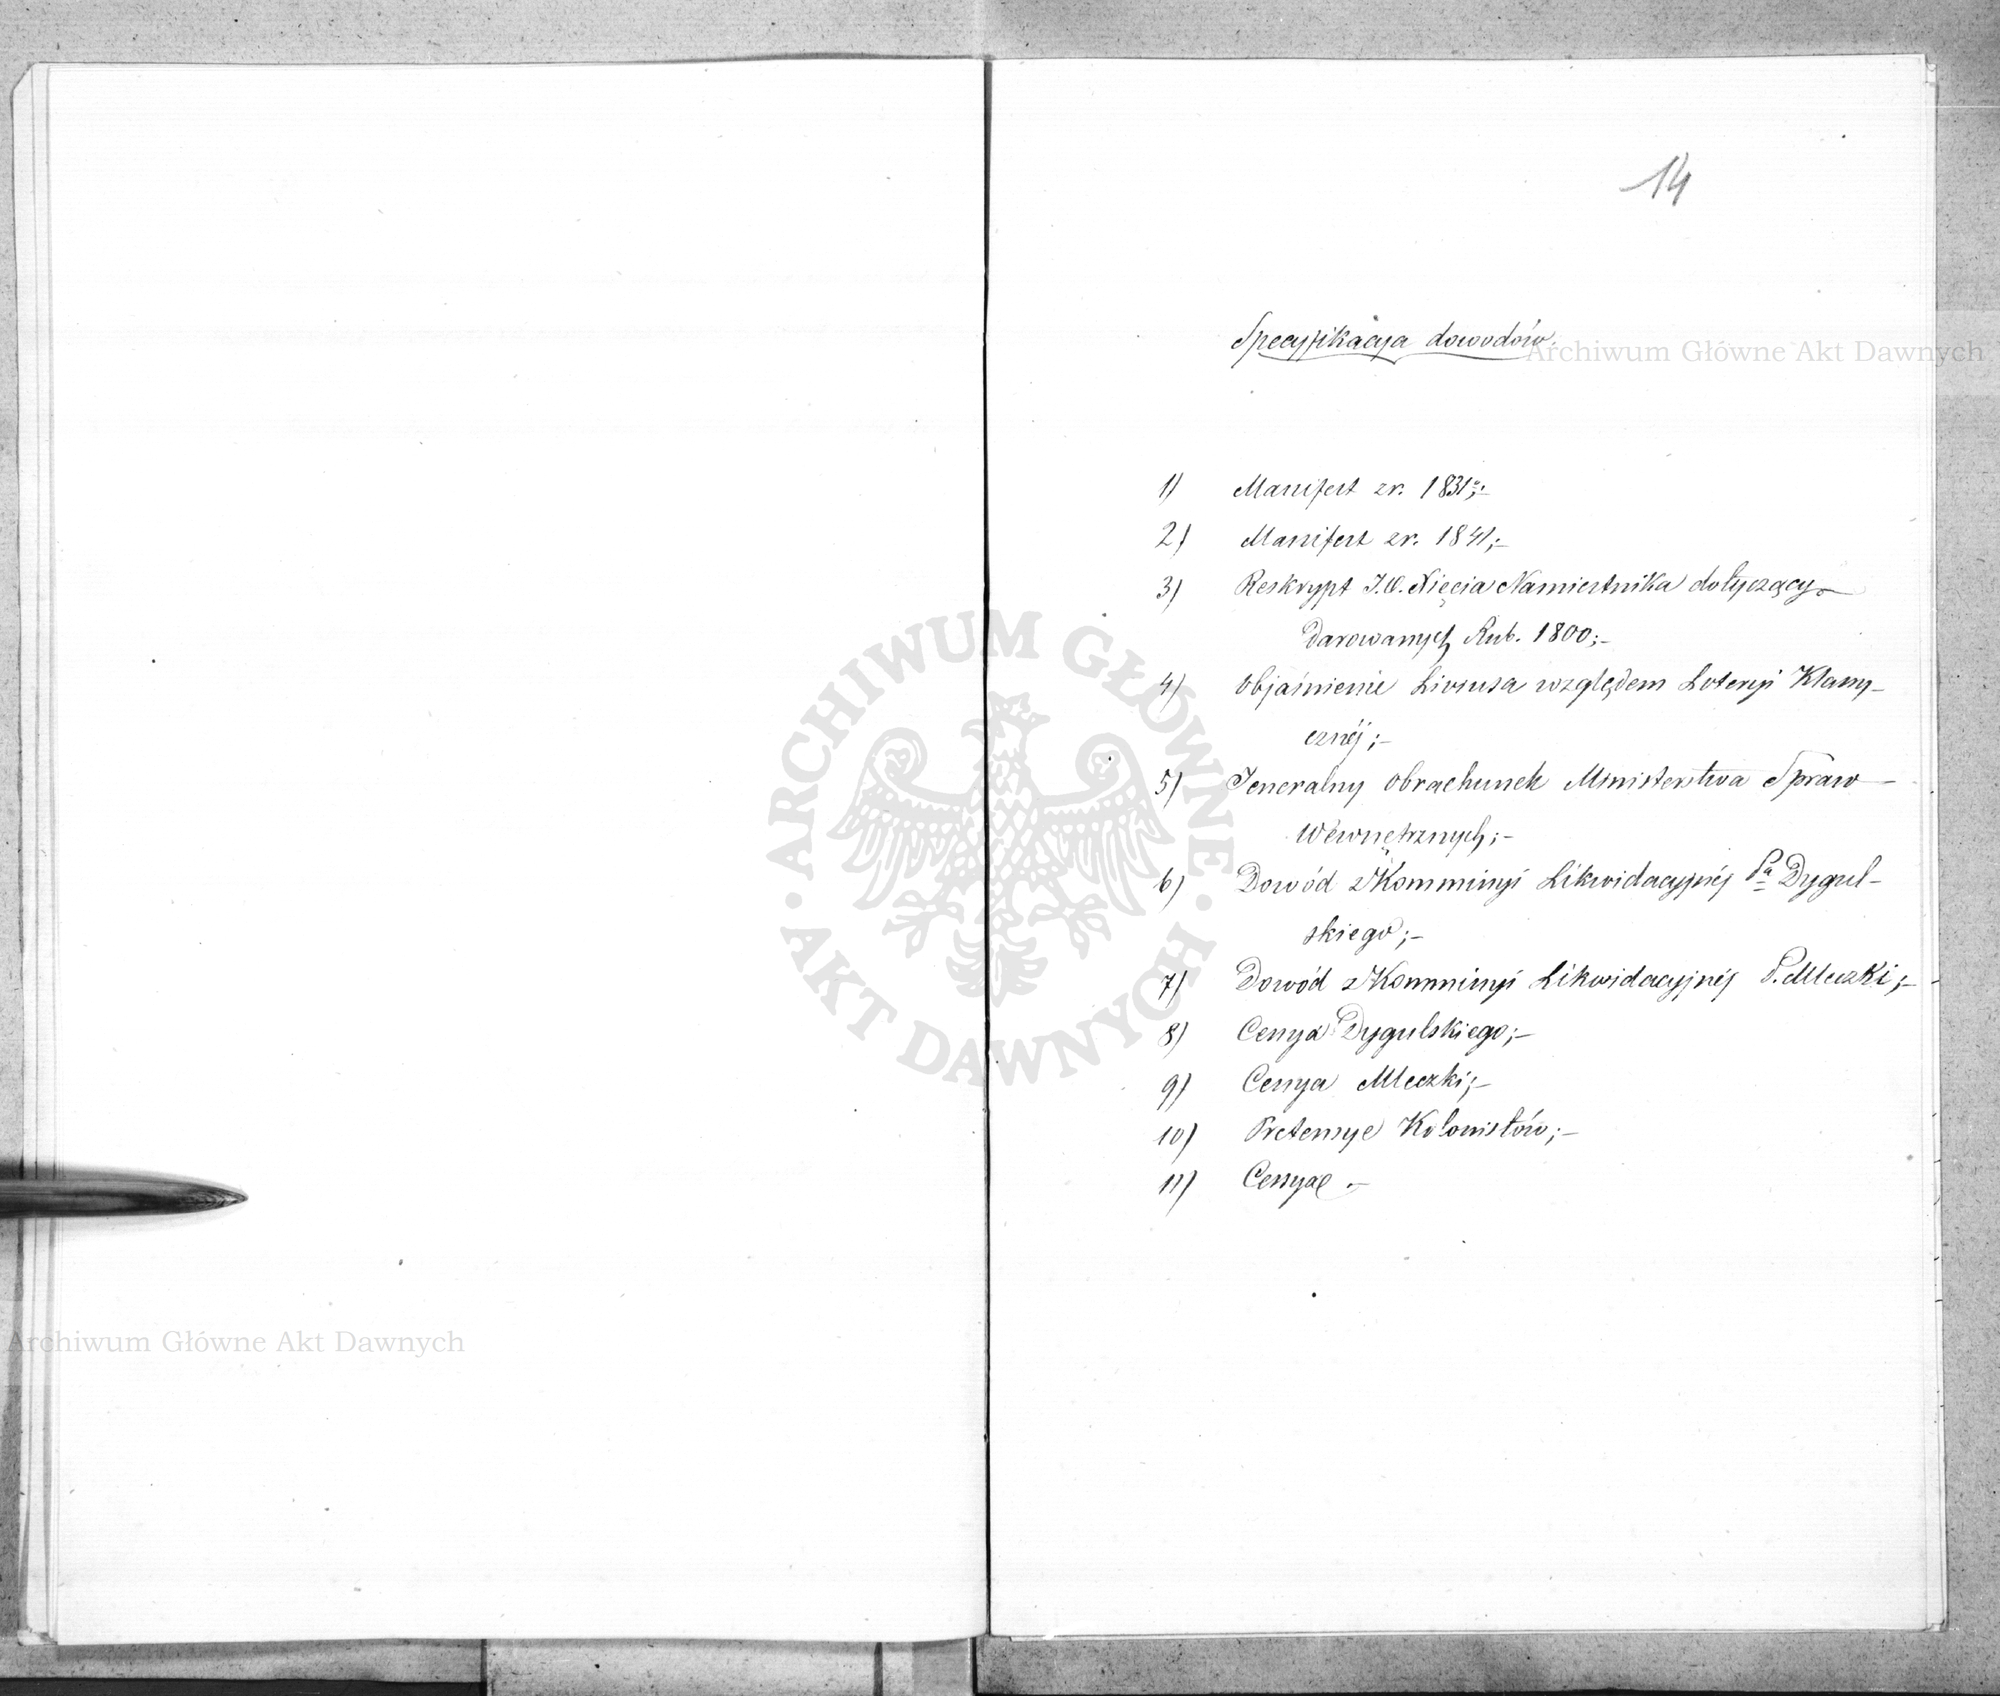 14
Specyfikacya dowodów.
1) Manifest z r. 1831;-
2) Manifest z r. 1841;-
3) Reskrypt J.O. Xięcia Namiestnika dotyczący
darowanych Rub. 1800;-
4) Objaśnienie Liviusa względem Loteryi Klassy-
cznéj;-
5) Jeneralny Obrachunek Ministerstwa Spraw
Wewnętrznych;-
6) Dowód z Kommissyi Likwidacyjnéj Pa Dygul-
skiego;-
7) Dowód z Kommissyi Likwidacyjnéj P. Mleczki;-
8) Cessya Dygulskiego;-
9) Cessya Mleczki;-
10) Pretensye Kolonistów;-
11) Cessye.-
Archiwum Główne Akt Dawnych
ARCHIWUM GŁÓWNE · AKT DAWNYCH ·
Archiwum Główne Akt Dawnych